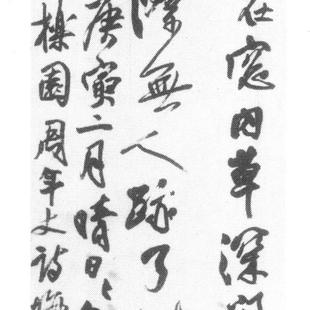 在窓内草深
無人跡了
庚寅二月晴日
櫟園周年丈詩